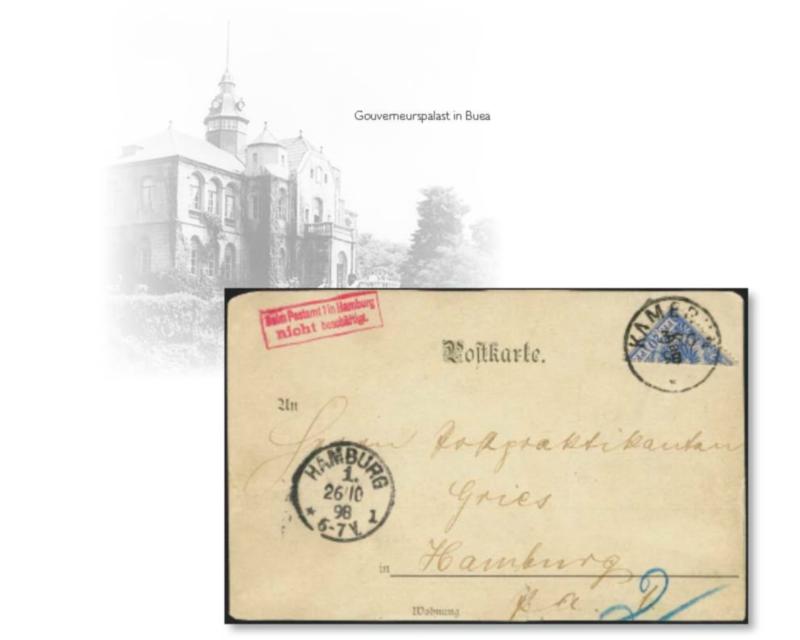 Gouverneurspalast in Buea
Beim Postamt 1 in Hamburg
nicht beschäftigt.
Postkarte.
KAMERUN
98
An
Herrn Postpraktikanten
HAMBURG
1.
26/10
98
* 6-7V. 1
Gries
in Hamburg
p. a. 1
Wohnung